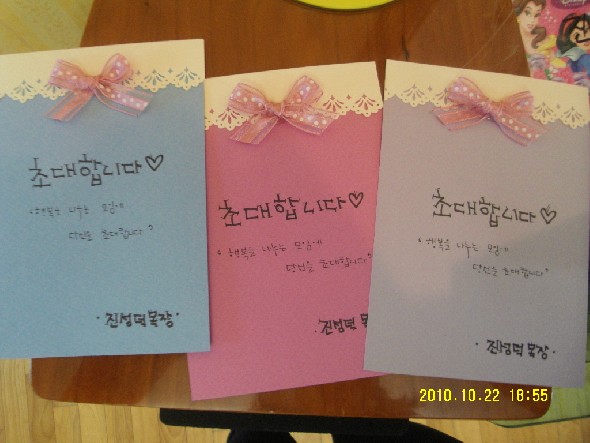 초대합니다♡
"행복을 나누는 모임에
당신을 초대합니다"
·진성덕목장·
초대합니다♡
"행복을 나누는 모임에
당신을 초대합니다"
·진성덕 목
초대합니다♡
"행복을 나누는 모임에
당신을 초대합니다"
·진성덕목장·
2010.10.22 18:55